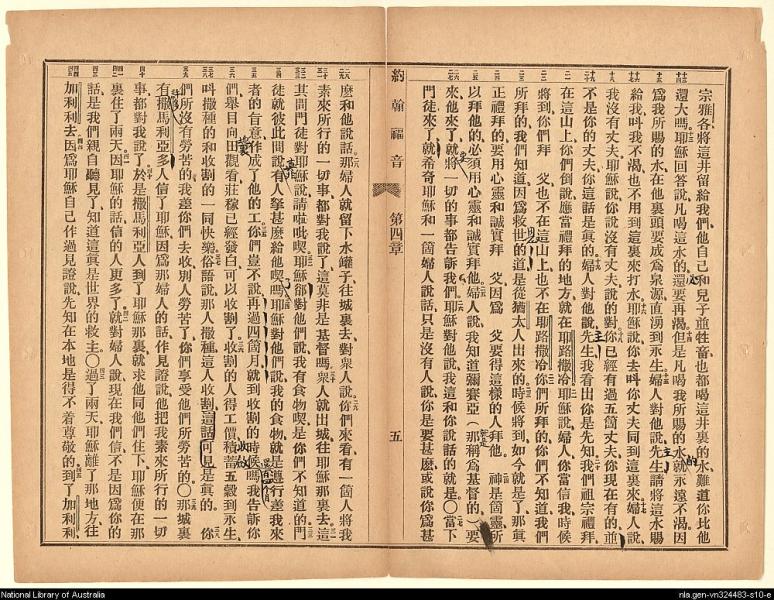 宗雅各將這井留給我們、他自己和兒子並牲畜也都喝這井裏的水、難道你比他
還大嗎、耶穌回答說、凡喝這水的還要再渴、但是凡喝我所賜的水、就永遠不渴、因
爲我所賜的水、在他裏頭要成爲泉源、直湧到永生、婦人對他說、先生、請將這水賜
給我、叫我不渴、也不用到這裏來打水、耶穌說、你去叫你丈夫同到這裏來、婦人說、
我沒有丈夫、耶穌說、你說沒有丈夫、說的對、你已經有過五箇丈夫、你現在有的、並
不是你的丈夫、你這話是真的、婦人對他說、先生、我看出你是先知、我們祖宗禮拜
在這山上、你們倒說應當禮拜的地方就在耶路撒冷、耶穌說、婦人、你當信我、時候
將到、你們拜 父、也不在這山上、也不在耶路撒冷、你們所拜的、你們不知道、我們
所拜的、我們知道、因爲救世的道是從猶太人出來的、時候將到、如今就是了、那真
正禮拜的、要用心靈和誠實拜 父、因爲 父要得這樣的人拜他、 神是箇靈、所
以拜他的、必須用心靈和誠實拜他、婦人說、我知道彌賽亞（那稱爲基督的）要
來、他來了、就將一切的事都告訴我們、耶穌對他說、我這和你說話的就是、〇當下
門徒來了、就希奇耶穌和一箇婦人說話、只是沒有人說、你是要甚麽、或說、你爲甚
約翰福音 第四章 五
麽和他說話、那婦人就留下水罐子、往城裏去、對衆人說、你們來看、有一箇人將我
素來所行的一切事、都對我說了、這莫非是基督嗎、衆人就出城往耶穌那裏去、這
其間門徒對耶穌說、請啦吡喫、耶穌卻對他們說、我有食物喫、是你們不知道的、門
徒就彼此間說、有人拏甚麽給他喫嗎、耶穌對他們說、我的食物就是遵行差我來
者的旨意、作成了他的工、你們豈不說、再過四箇月就到收割的時候嗎、我告訴你
們、舉目向田觀看、莊稼已經發白、可以收割了、收割的人得工價、積蓄五穀到永生、
叫撒種的和收割的一同快樂、俗語說、那人撒種、這人收割、這話可見是真的、 你
們所沒有勞苦的、我差你們去收、別人勞苦了、你們享受他們所勞苦的、〇那城裏
有撒馬利亞多人信了耶穌、因爲那婦人的話、作見證說、他把我素來所行的一切
事都對我說了、於是撒馬利亞人到了耶穌那裏、就求他同他們住下、耶穌便在那
裏住了兩天、因耶穌的話、信的人更多了、就對婦人說、現在我們信、不是因爲你的
話、是我們親自聽見了、知道這真是世界的救主、〇過了兩天、耶穌離了那地方、往
加利利去、因爲耶穌自己作過見證說、先知在本地是得不着尊敬的、到了加利利、
National Library of Australia
nla.gen-vn324483-s10-e